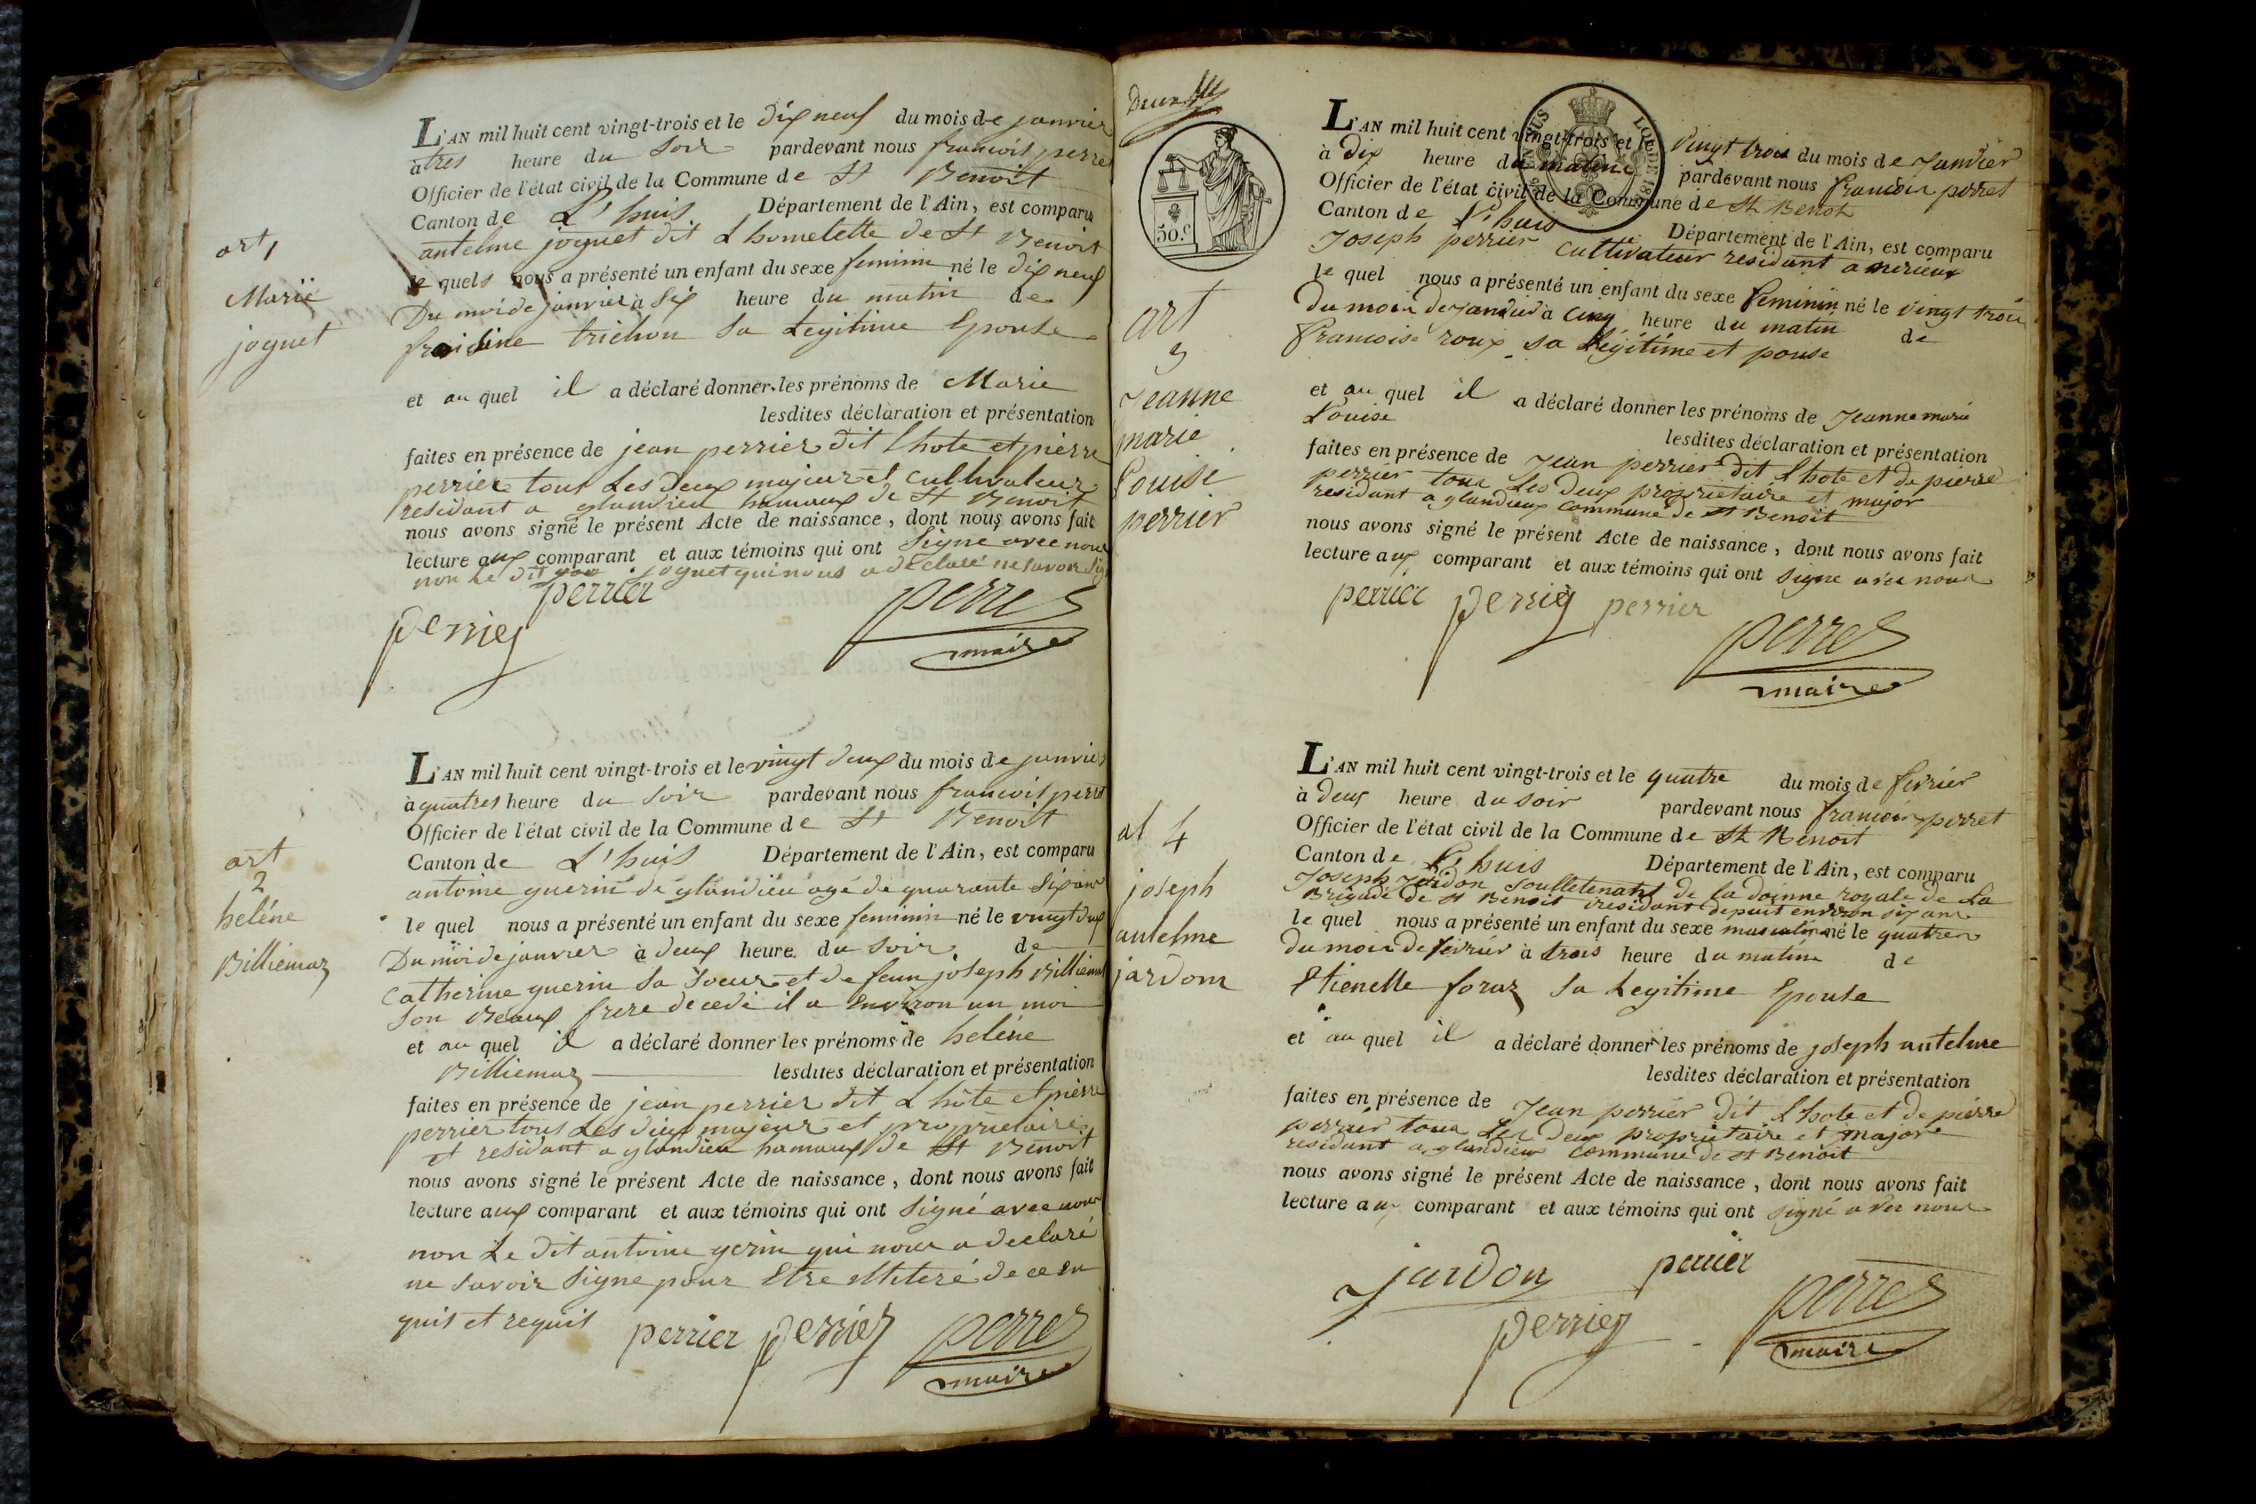 art 1
Marie
joguet
L'AN mil huit cent vingt-trois et le dix neuf du mois de janvier
à tres heure du soir pardevant nous francois perret
Officier de l'état civil de la Commune de St Benoit
Canton de L'huis Département de l'Ain, est comparu
antelme joguet dit Lhomelette de St Benoit
le quels nous a présenté un enfant du sexe feminin né le dix neuf
Du moi de janvier à six heure du matin de
trichon sa Legitime Epouse
et au quel il a déclaré donner les prénoms de Marie
lesdites déclaration et présentation
faites en présence de jean perrier dit Lhote et pierre
perrier tous Les deux majeur et cultivateur
residant a glandieu hamaux de St Benoit
nous avons signé le présent Acte de naissance, dont nous avons fait
lecture aux comparant et aux témoins qui ont signe avec nous
non Le dit joguet qui nous a déclaré ne savoir
perrier
perrier
perret
maire
art
2
heléne
Billiemaz
L'AN mil huit cent vingt-trois et le vingt deux du mois de janvier
à quatres heure du soir pardevant nous francois perret
Officier de l'état civil de la Commune de St Benoit
Canton de L'huis Département de l'Ain, est comparu
antoine guerin de glandieu agé de quarante six ans
le quel nous a présenté un enfant du sexe feminin né le vingt deux
Du moi de janvier à deux heure du soir de
Catherine guerin sa soeur et de feu joseph Billiemaz
son Beaux frere decedé il a environ un moi
et au quel il a déclaré donner les prénoms de heléne
Billiemaz lesdites déclaration et présentation
faites en présence de jean perrier dit Lhôte et pierre
perrier tous Les deux majeur et proprietaire
et residant a glandieu hamaux de St Benoit
nous avons signé le présent Acte de naissance, dont nous avons fait
lecture aux comparant et aux témoins qui ont signé avec nous
non Le dit antoine gerin qui nous a declaré
ne savoir signe pour Etre de ce en
quis et requis
perrier perrier perret
maire
50.c
art
3
Jeanne
marie
Louise
perrier
L'AN mil huit cent vingt-trois et le vingt trois du mois de Janvier
à dix heure du matin pardevant nous francois perret
Officier de l'état civil de la Commune de St Benoit
Canton de L'huis Département de l'Ain, est comparu
Joseph perrier cultivateur residant a
le quel nous a présenté un enfant du sexe feminin né le vingt trois
du mois de Janvier à cinq heure du matin de
francoise roux sa Légitime et pouse
et au quel il a déclaré donner les prénoms de Jeanne marie
Louise
lesdites déclaration et présentation
faites en présence de Jean perrier dit Lhote et de pierre
perrier tous Les deux proprietaire et major
residant a glandieux commune de St Benoit
nous avons signé le présent Acte de naissance, dont nous avons fait
lecture aux comparant et aux témoins qui ont signe avec nous
perrier perrier perrier
perret
maire
at 4
joseph
antelme
jardom
L'AN mil huit cent vingt-trois et le quatre du mois de fevrier
à deux heure du soir pardevant nous francois perret
Officier de l'état civil de la Commune de St Benoit
Canton de L'huis Département de l'Ain, est comparu
Joseph jardon de la royale de La
Brigade de St Benoit residant depuis environ six ans
le quel nous a présenté un enfant du sexe masculin né le quatre
du mois de fevrier à trois heure du matin de
Etienette foraz sa Legitime Epouse
et au quel il a déclaré donner les prénoms de joseph antelme
lesdites déclaration et présentation
faites en présence de Jean perrier dit Lhote et de pierre
perrier tous Les deux proprietaire et majore
residant a glandieux commune de St Benoit
nous avons signé le présent Acte de naissance, dont nous avons fait
lecture aux comparant et aux témoins qui ont signé avec nous
jardon perrier
perrier perret
maire